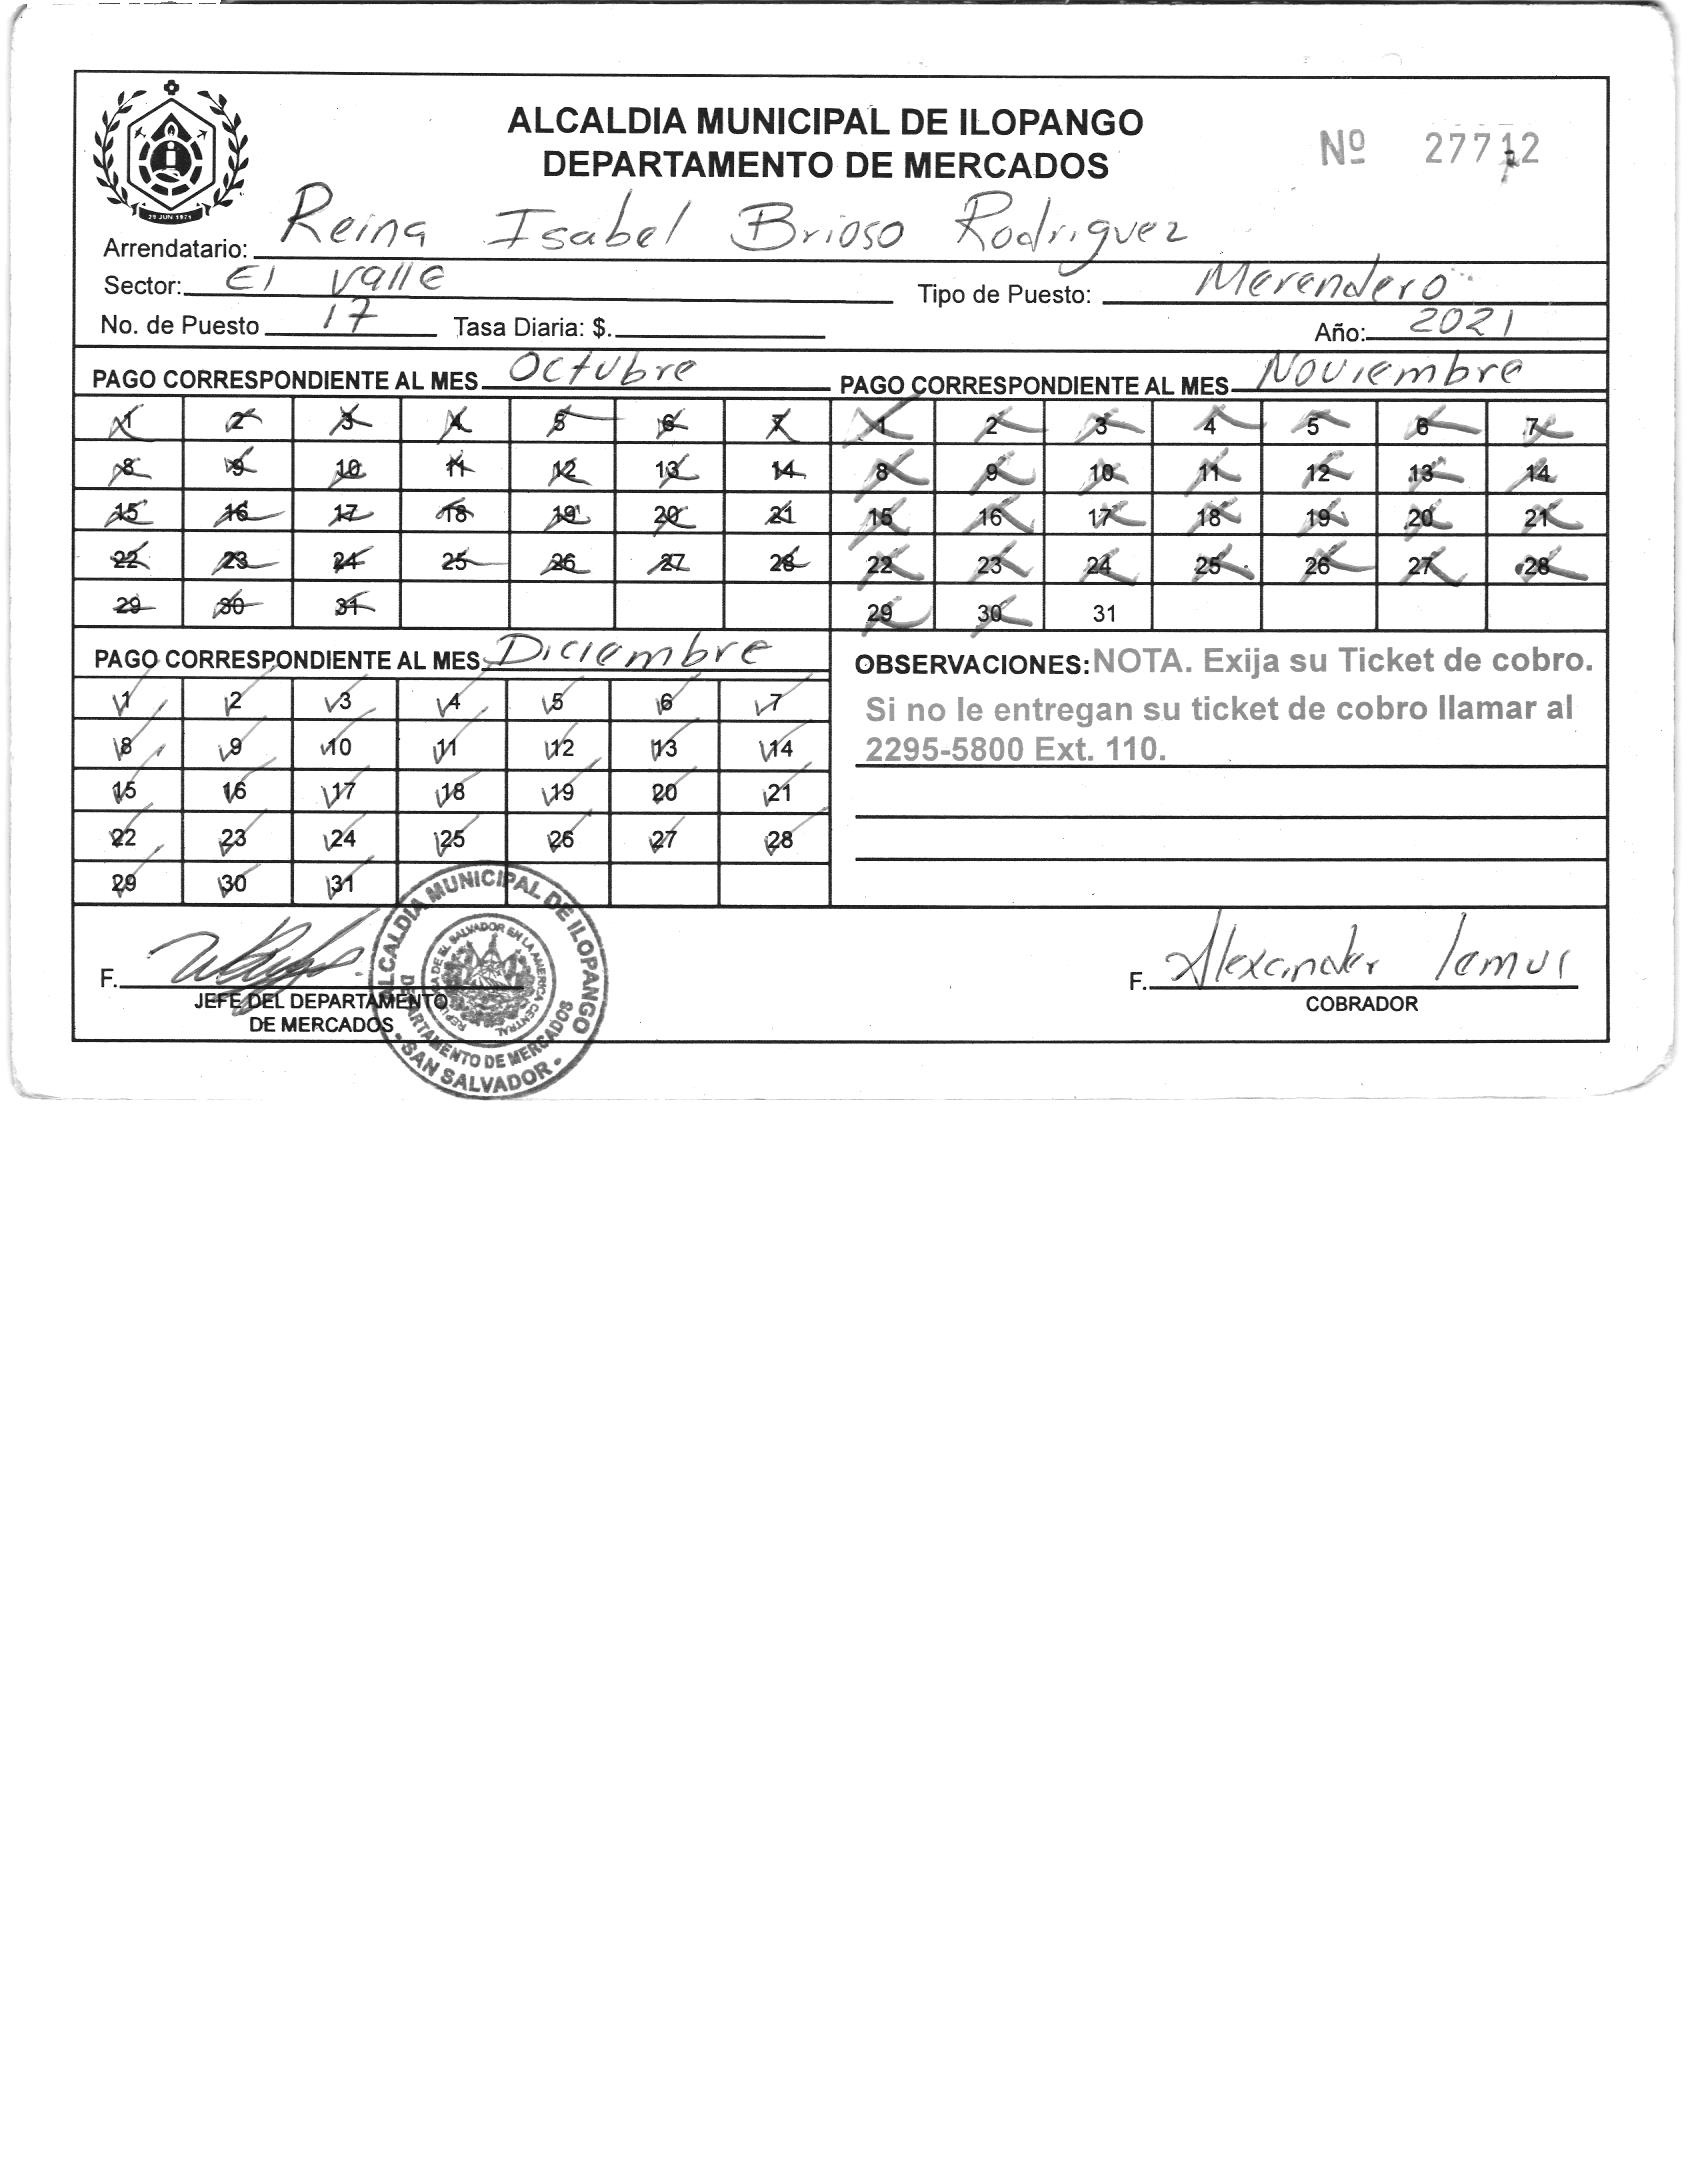 ALCALDIA MUNICIPAL DE ILOPANGO
DEPARTAMENTO DE MERCADOS
Nº 27712
29 JUN 1971
Arrendatario: Reina Isabel Brioso Rodriguez
Sector: El Valle Tipo de Puesto: Merendero
No. de Puesto 17 Tasa Diaria: $. Año: 2021
PAGO CORRESPONDIENTE AL MES Octubre
1 2 3 4 5 6 7
8 9 10 11 12 13 14
15 16 17 18 19 20 21
22 23 24 25 26 27 28
29 30 31
PAGO CORRESPONDIENTE AL MES Noviembre
1 2 3 4 5 6 7
8 9 10 11 12 13 14
15 16 17 18 19 20 21
22 23 24 25 26 27 28
29 30 31
PAGO CORRESPONDIENTE AL MES Diciembre
1 2 3 4 5 6 7
8 9 10 11 12 13 14
15 16 17 18 19 20 21
22 23 24 25 26 27 28
29 30 31
OBSERVACIONES: NOTA. Exija su Ticket de cobro.
Si no le entregan su ticket de cobro llamar al
2295-5800 Ext. 110.
F.
JEFE DEL DEPARTAMENTO
DE MERCADOS
ALCALDIA MUNICIPAL DE ILOPANGO
REPUBLICA DE EL SALVADOR EN LA AMERICA CENTRAL
DEPARTAMENTO DE MERCADOS
- SAN SALVADOR -
F. Alexander lemus
COBRADOR